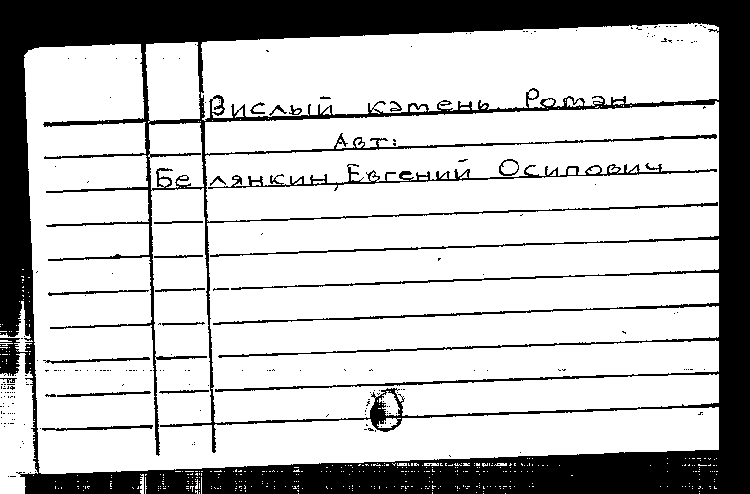 Вислый камень. Роман
Авт:
Белянкин, Евгений Осипович